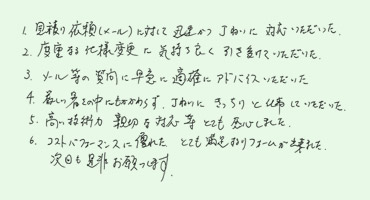 1. 見積り依頼(メール)に対して 迅速かつ丁ねいに 対応いただいた。
2. 度重なる仕様変更に 気持ち良く 引き受けていただいた。
3. メール等の質問に早急に適確にアドバイスいただいた
4. 厳しい暑さの中にもかかわらず、丁ねいに きっちりと 仕事していただいた。
5. 高い技術力 親切な対応等 とても感心しました。
6. コストパフォーマンスに優れた とても満足なリフォームが出来た。
次回も是非お願いします。